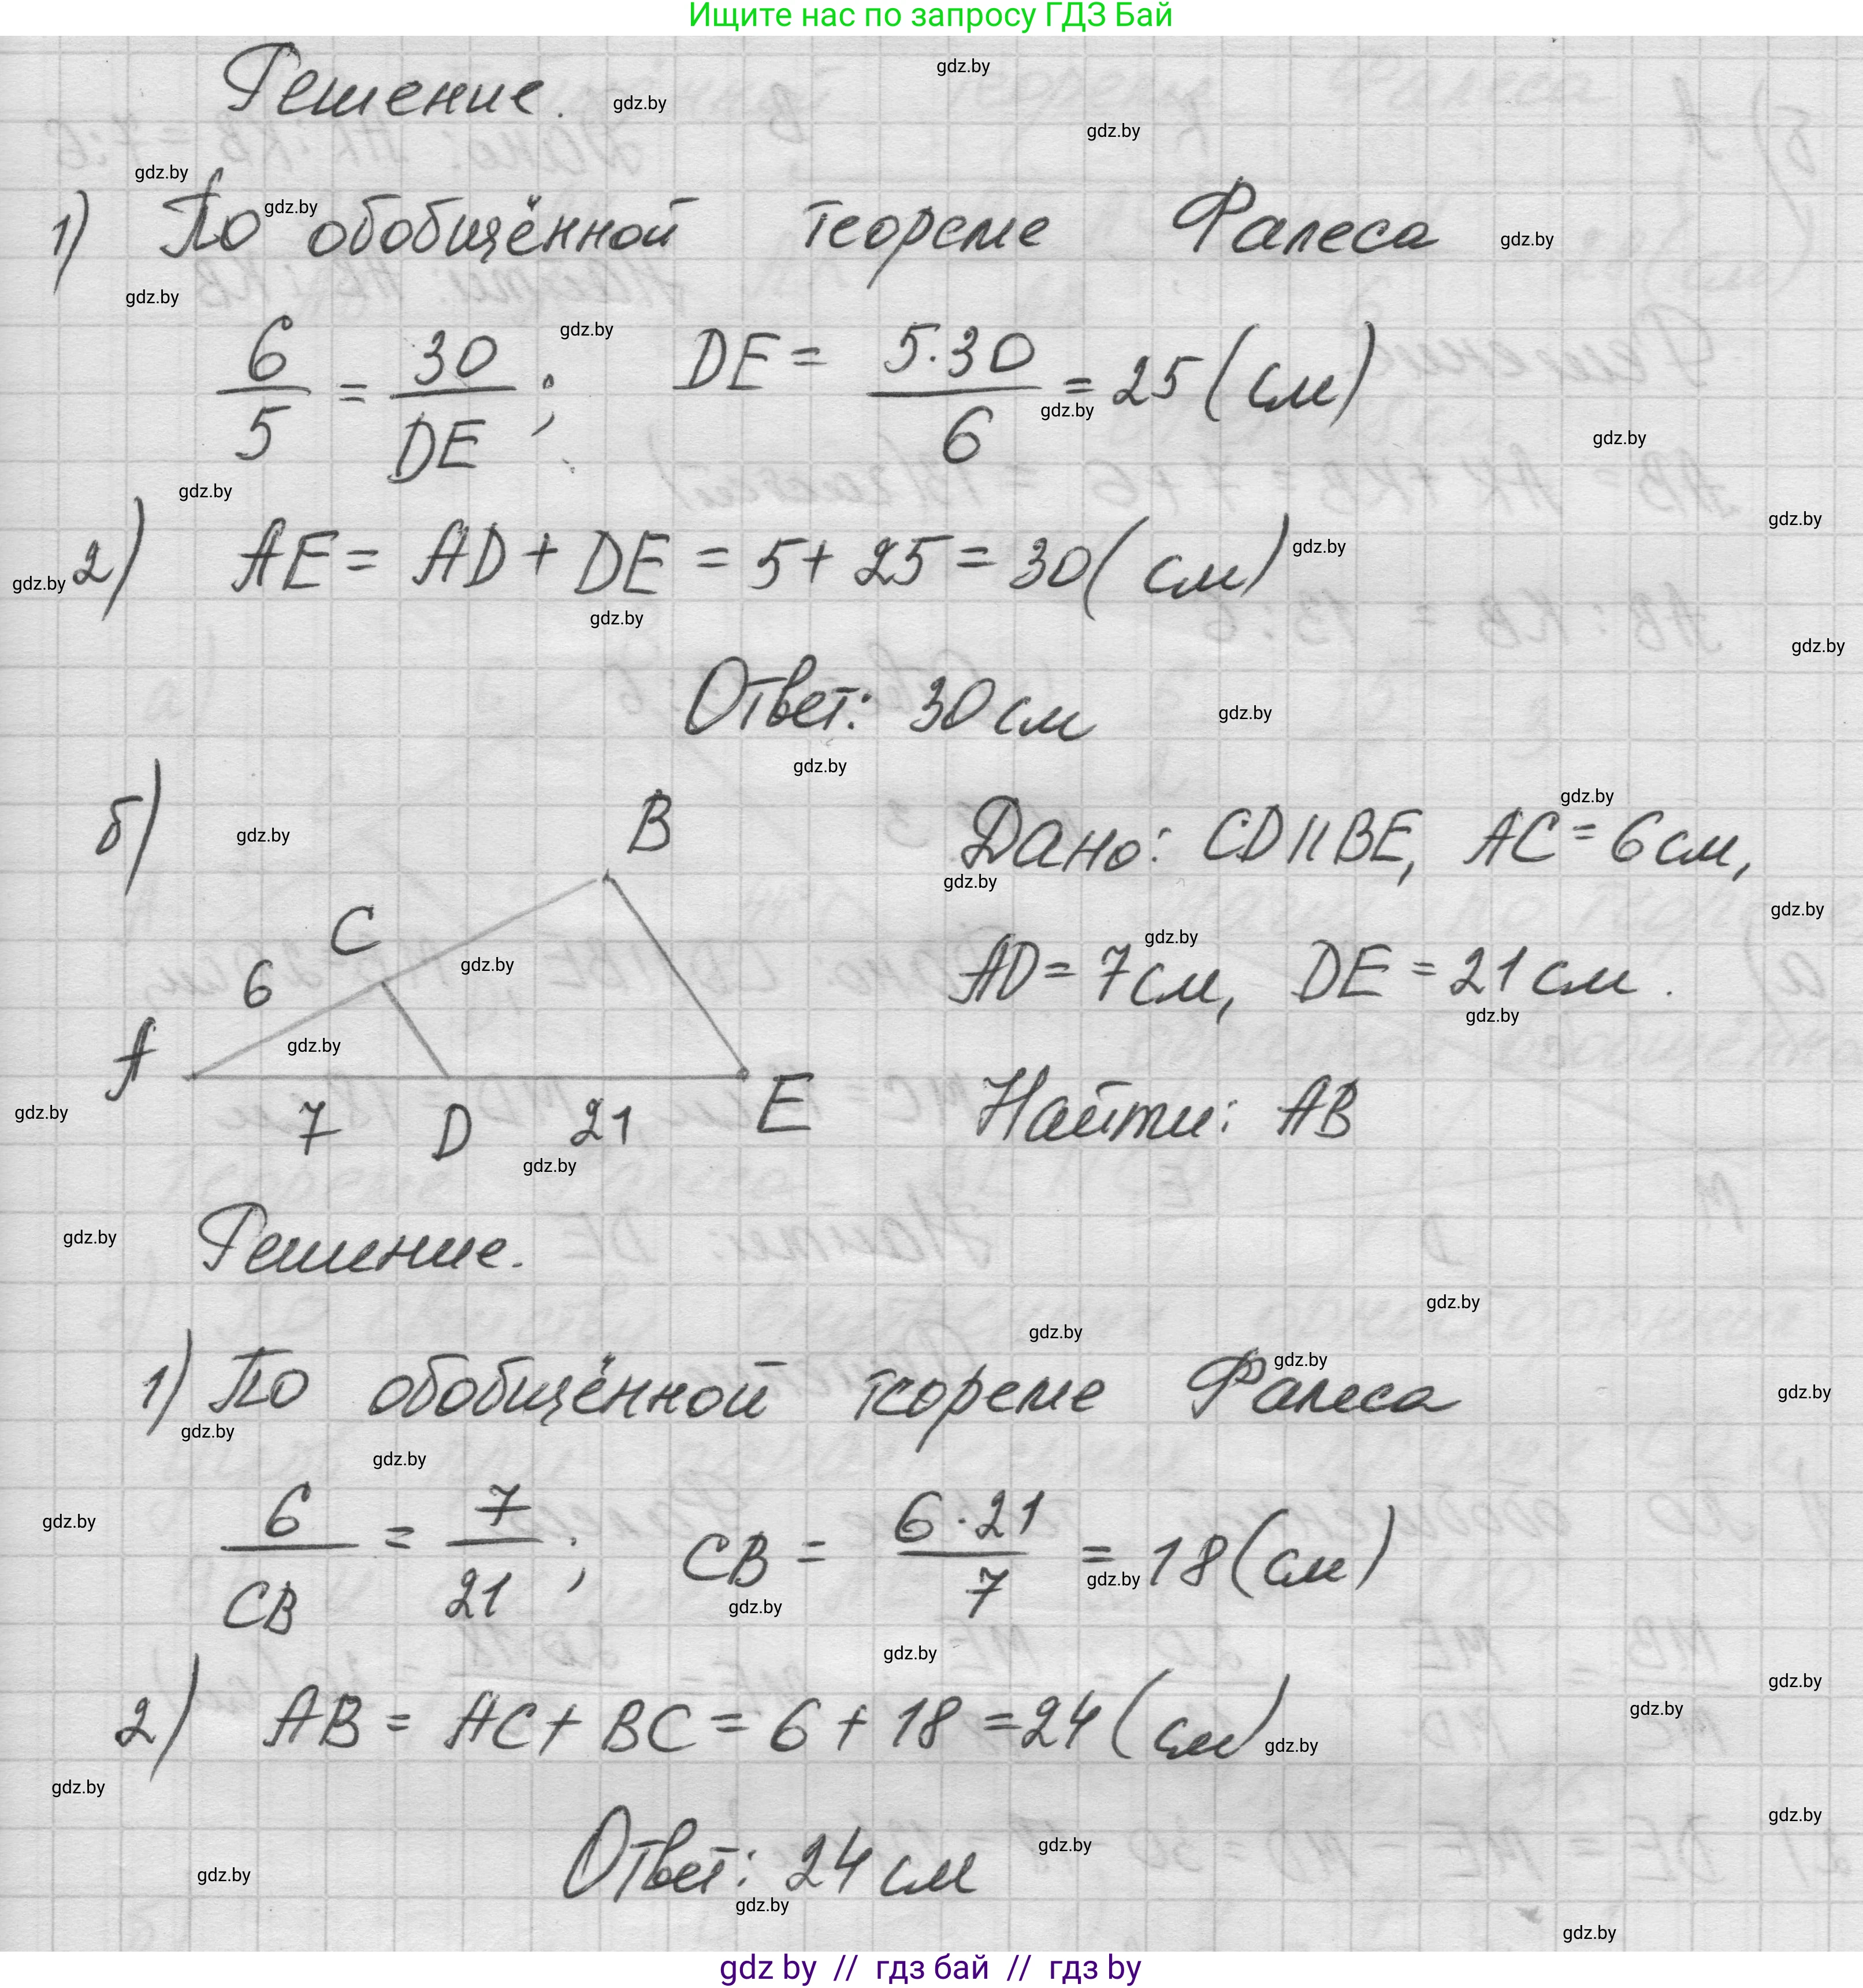 Ищите нас по запросу ГДЗ Бай
Решение.
1) По обобщённой теореме Фалеса
6/5 = 30/DE; DE = 5·30/6 = 25 (см)
2) AE = AD + DE = 5 + 25 = 30 (см)
Ответ: 30 см
б) Дано: CD || BE, AC = 6 см,
AD = 7 см, DE = 21 см.
Найти: AB
B
C
6
A
7 D 21 E
Решение.
1) По обобщённой теореме Фалеса
6/CB = 7/21; CB = 6·21/7 = 18 (см)
2) AB = AC + BC = 6 + 18 = 24 (см)
Ответ: 24 см
gdz by // гдз бай // гдз by